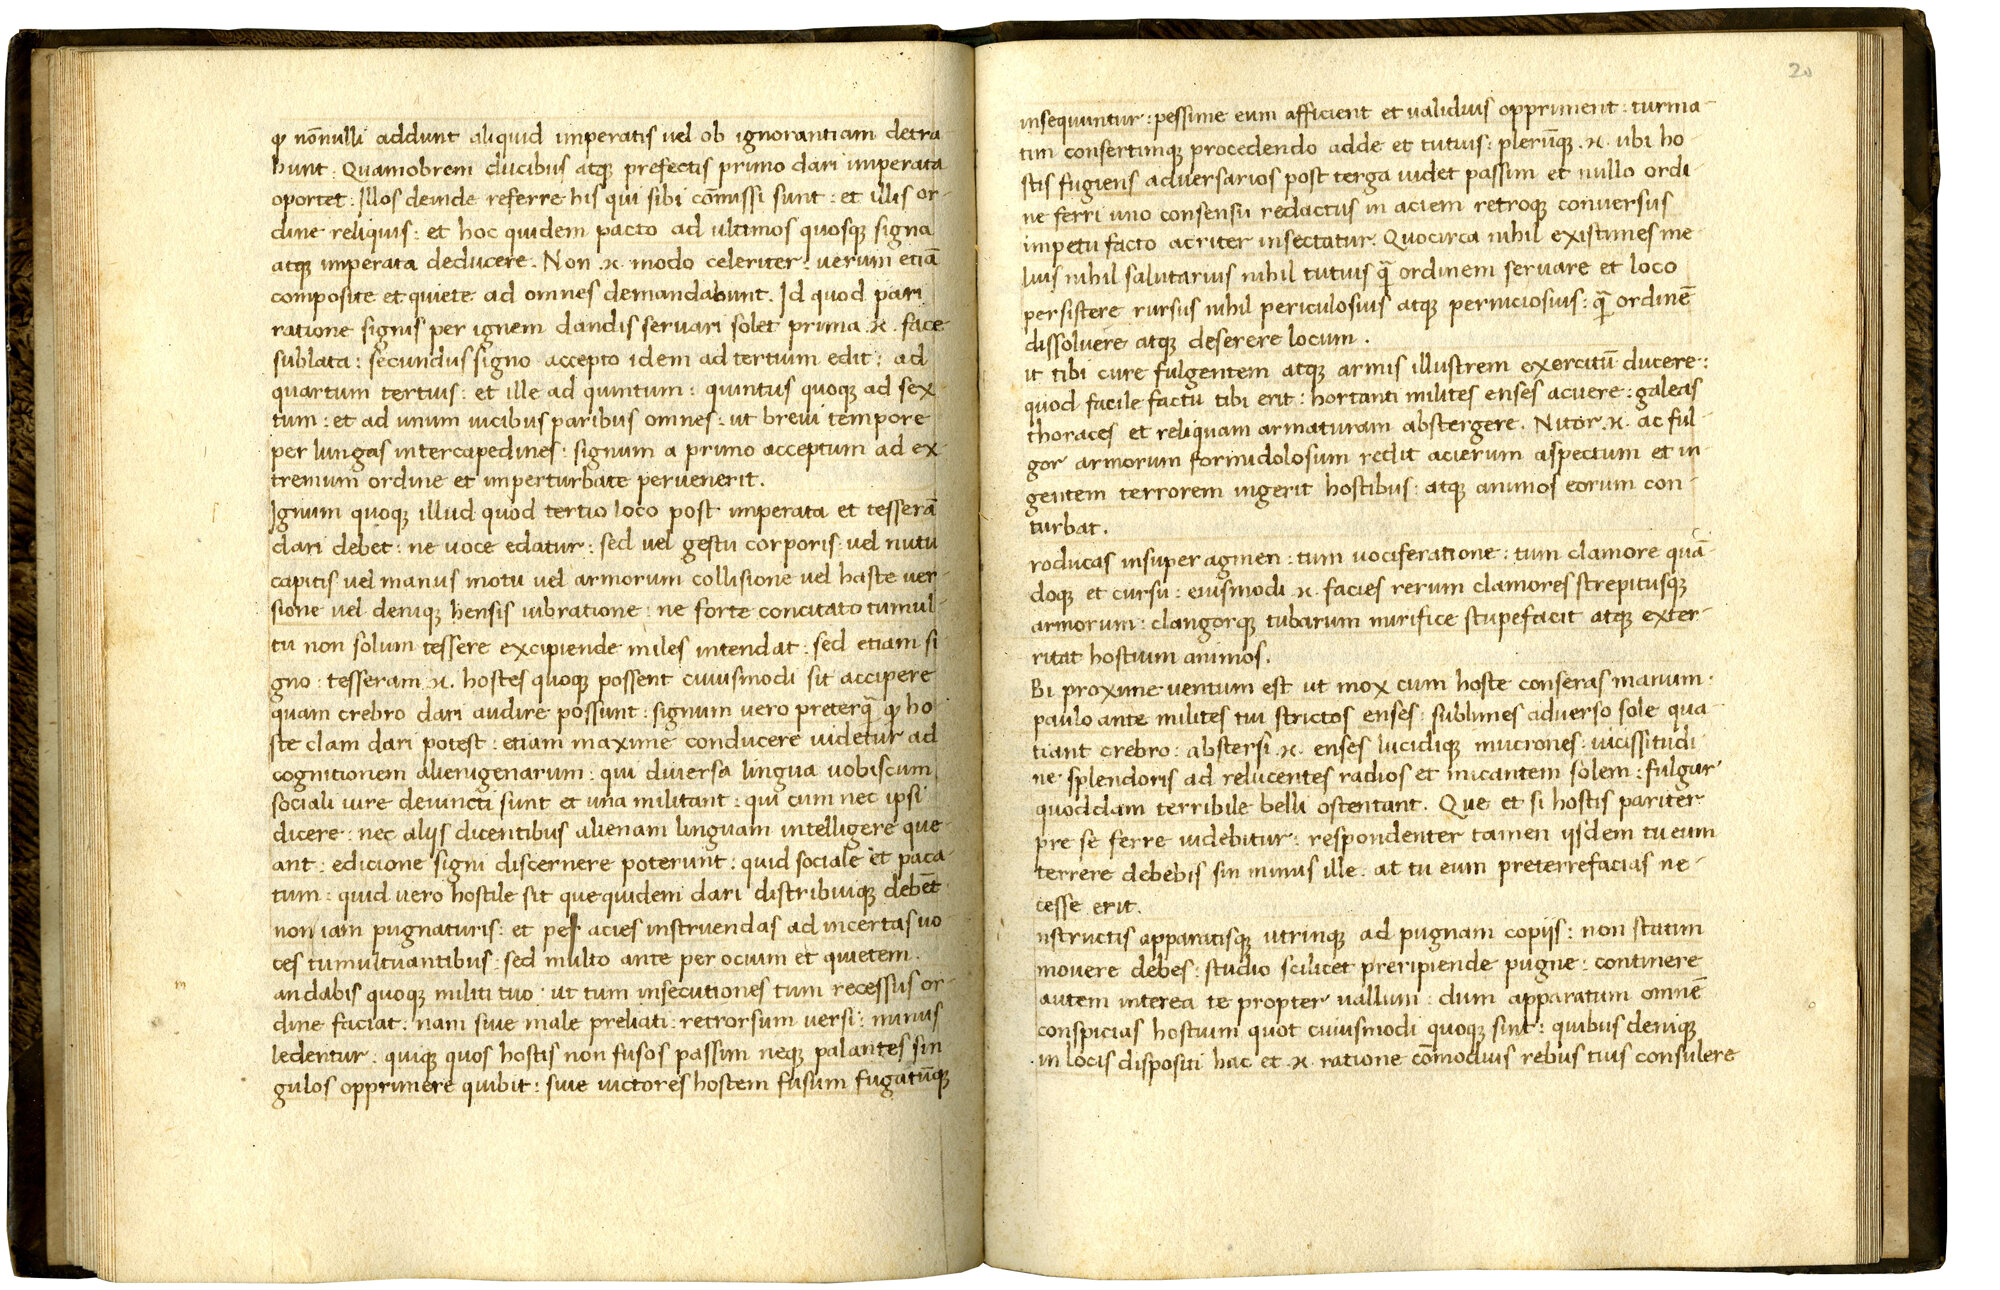 ꝙ nōnulli addunt aliquid imperatis vel ob ignorantiam detra
hunt. Quamobrem ducibus atqꝫ prefectis primo dari imperata
oportet. Illos deinde referre his qui sibi cōmissi sunt: et illis or-
dine reliquis: et hoc quidem pacto ad ultimos quosqꝫ signa
atqꝫ imperata deducere. Non .n. modo celeriter: verum etiā
composite et quiete ad omnes demandabunt. Id quod pari
ratione signis per ignem dandis servari solet prima .n. face
sublata: secundus signo accepto idem ad tertium edit: ad
quartum tertius: et ille ad quintum: quintus quoqꝫ ad sex
tum: et ad unum vicibus paribus omnes: ut brevi tempore
per lungas intercapedines: signum a primo acceptum ad ex
tremum ordine et imperturbate pervenerit.
Ignum quoqꝫ illud quod tertio loco post imperata et tesserā
dari debet: ne voce edatur: sed vel gestu corporis vel nutu
capitis vel manus motu vel armorum collisione vel haste ver-
sione vel deniqꝫ hensis vibratione: ne forte concitato tumul-
tu non solum tessere excipiende miles intendat: sed etiam si
gno: tesseram .n. hostes quoqꝫ possent cuiusmodi sit accipere
quam crebro dari audire possunt: signum vero preterq̄ ꝙ ho
ste clam dari potest: etiam maxime conducere videtur ad
cognitionem alienigenarum: qui diversa lingua vobiscum
sociali iure devincti sunt et una militant: qui cum nec ipsi
dicere: nec alijs dicentibus alienam linguam intelligere que
ant: edicione signi discernere poterunt: quid sociale et paca-
tum: quid vero hostile sit que quidem dari distribuiqꝫ debēt
non iam pugnaturis: et per acies instruendas ad incertas vo
ces tumultuantibus: sed multo ante per ocium et quietem.
m
andabis quoqꝫ militi tuo: ut tum insecutiones tum recessus or-
dine faciat: nam sive male preliati: retrorsum versi: minus
ledentur: quiqꝫ quos hostis non fusos passim neqꝫ palantes sin
gulos opprimere quibit: sive victores hostem fusum fugatūqꝫ
20
insequuntur: pessime eum afficient et validius oppriment: turma-
tim consertimqꝫ procedendo adde et tutius: plerūqꝫ .n. ubi ho-
stis fugiens adversarios post terga videt passim et nullo ordi-
ne ferri uno consensu redactus in aciem retroqꝫ conversus
impetu facto acriter insectatur. Quocirca nihil existimes me
lius nihil salutarius nihil tutius q̄ ordinem servare et loco
persistere rursus nihil periculosius atqꝫ perniciosius: q̄ ordinē
dissolvere atqꝫ deserere locum.
it tibi cure fulgentem atqꝫ armis illustrem exercitū ducere:
quod facile factu tibi erit: hortanti milites enses acuere: galeas
thoraces et reliquam armaturam abstergere. Nitor .n. ac ful-
gor armorum formidolosum redit acierum aspectum et in
gentem terrorem ingerit hostibus: atqꝫ animos eorum con-
turbat.
roducas insuper agmen: tum vociferatione: tum clamore quā-
doqꝫ et cursu: eiusmodi .n. facies rerum clamores strepitusqꝫ
armorum: clangorqꝫ tubarum mirifice stupefacit atqꝫ exter-
ritat hostium animos.
Bi proxime ventum est ut mox cum hoste conseras manum.
paulo ante milites tui strictos enses: sublimes adverso sole qua
tiant crebro: abstersi .n. enses lucidiqꝫ mucrones: vicissitudi
ne splendoris ad relucentes radios et micantem solem: fulgur
quoddam terribile belli ostentant. Que et si hostis pariter
pre se ferre videbitur: respondenter tamen ijsdem tu eum
terrere debebis sin minus ille. at tu eum preterrefacias ne-
cesse erit.
nstructis apparatisqꝫ utrinqꝫ ad pugnam copijs: non statim
movere debes: studio scilicet preripiende pugne: continere
autem interea te propter vallum: dum apparatum omnē
conspicias hostium quot cuiusmodi quoqꝫ sint: quibus deniqꝫ
in locis dispositi hac et .n. ratione cōmodius rebus tuis consulere